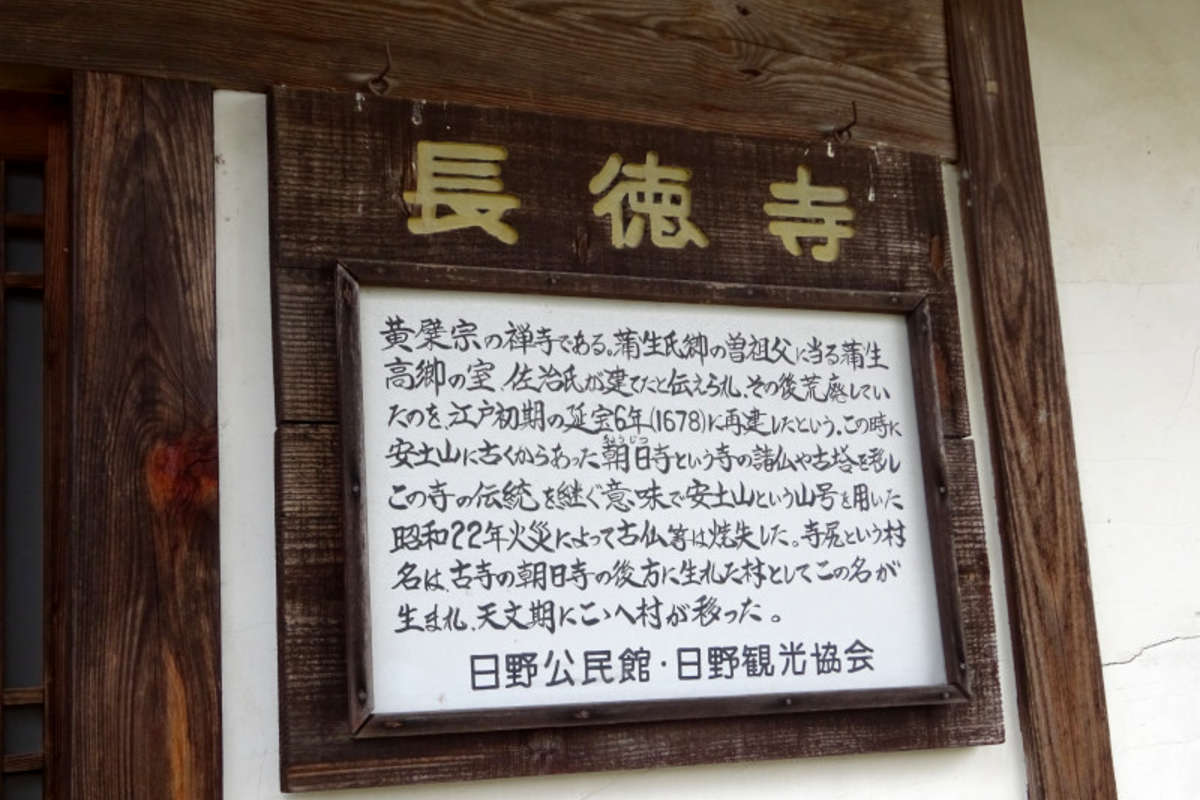 長徳寺
黄檗宗の禅寺である。蒲生氏郷の曽祖父に当る蒲生
高郷の室、佐治氏が建てたと伝えられ、その後荒廃してい
たのを、江戸初期の延宝6年(1678)に再建したという。この時に
安土山に古くからあった朝日寺という寺の諸仏や古塔を移し
この寺の伝統を継ぐ意味で安土山という山号を用いた
昭和22年火災によって古仏等は焼失した。寺尻という村
名は、古寺の朝日寺の後方に生れた村としてこの名が
生まれ、天文期にこゝへ村が移った。
日野公民館・日野観光協会